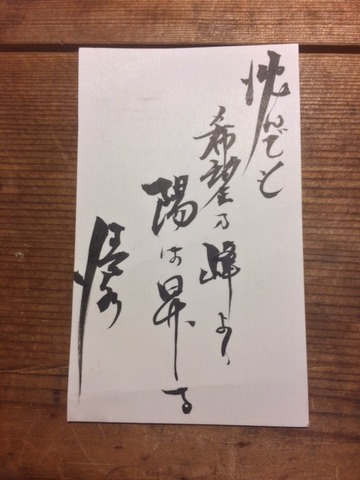 忱んでも
希望の峰より
陽は昇る